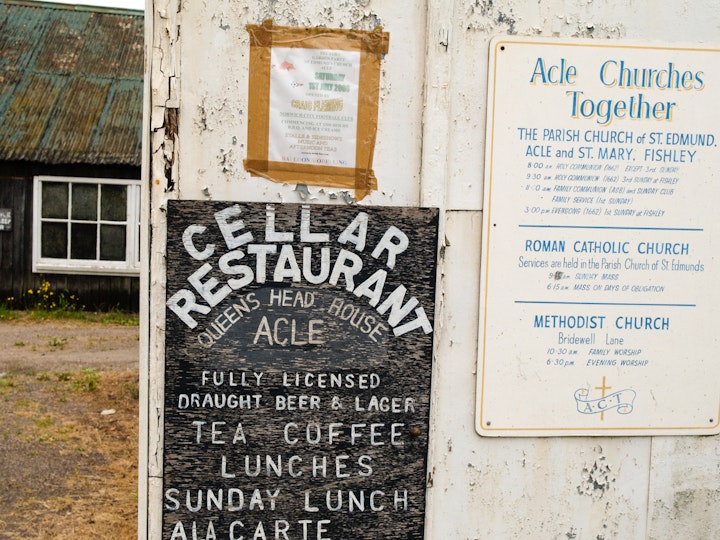 SATURDAY
1ST JULY 2006
CRAIG FLEMING
CELLAR
RESTAURANT
QUEENS HEAD HOUSE
ACLE
FULLY LICENSED
DRAUGHT BEER & LAGER
TEA COFFEE
LUNCHES
SUNDAY LUNCH
ALA CARTE
Acle Churches
Together
THE PARISH CHURCH of ST. EDMUND,
ACLE and ST. MARY, FISHLEY
8 00 am HOLY COMMUNION (1662) EXCEPT 3rd SUNDAY
9 30 am HOLY COMMUNION (1662) 3rd SUNDAY at FISHLEY
am FAMILY COMMUNION and SUNDAY CLUB
FAMILY SERVICE (1st SUNDAY)
3 00 pm EVENSONG (1662) 1st SUNDAY at FISHLEY
ROMAN CATHOLIC CHURCH
Services are held in the Parish Church of St. Edmunds
SUNDAY MASS
6 15 MASS ON DAYS OF OBLIGATION
METHODIST CHURCH
Bridewell Lane
10 30 am FAMILY WORSHIP
6 30 pm EVENING WORSHIP
A·C·T